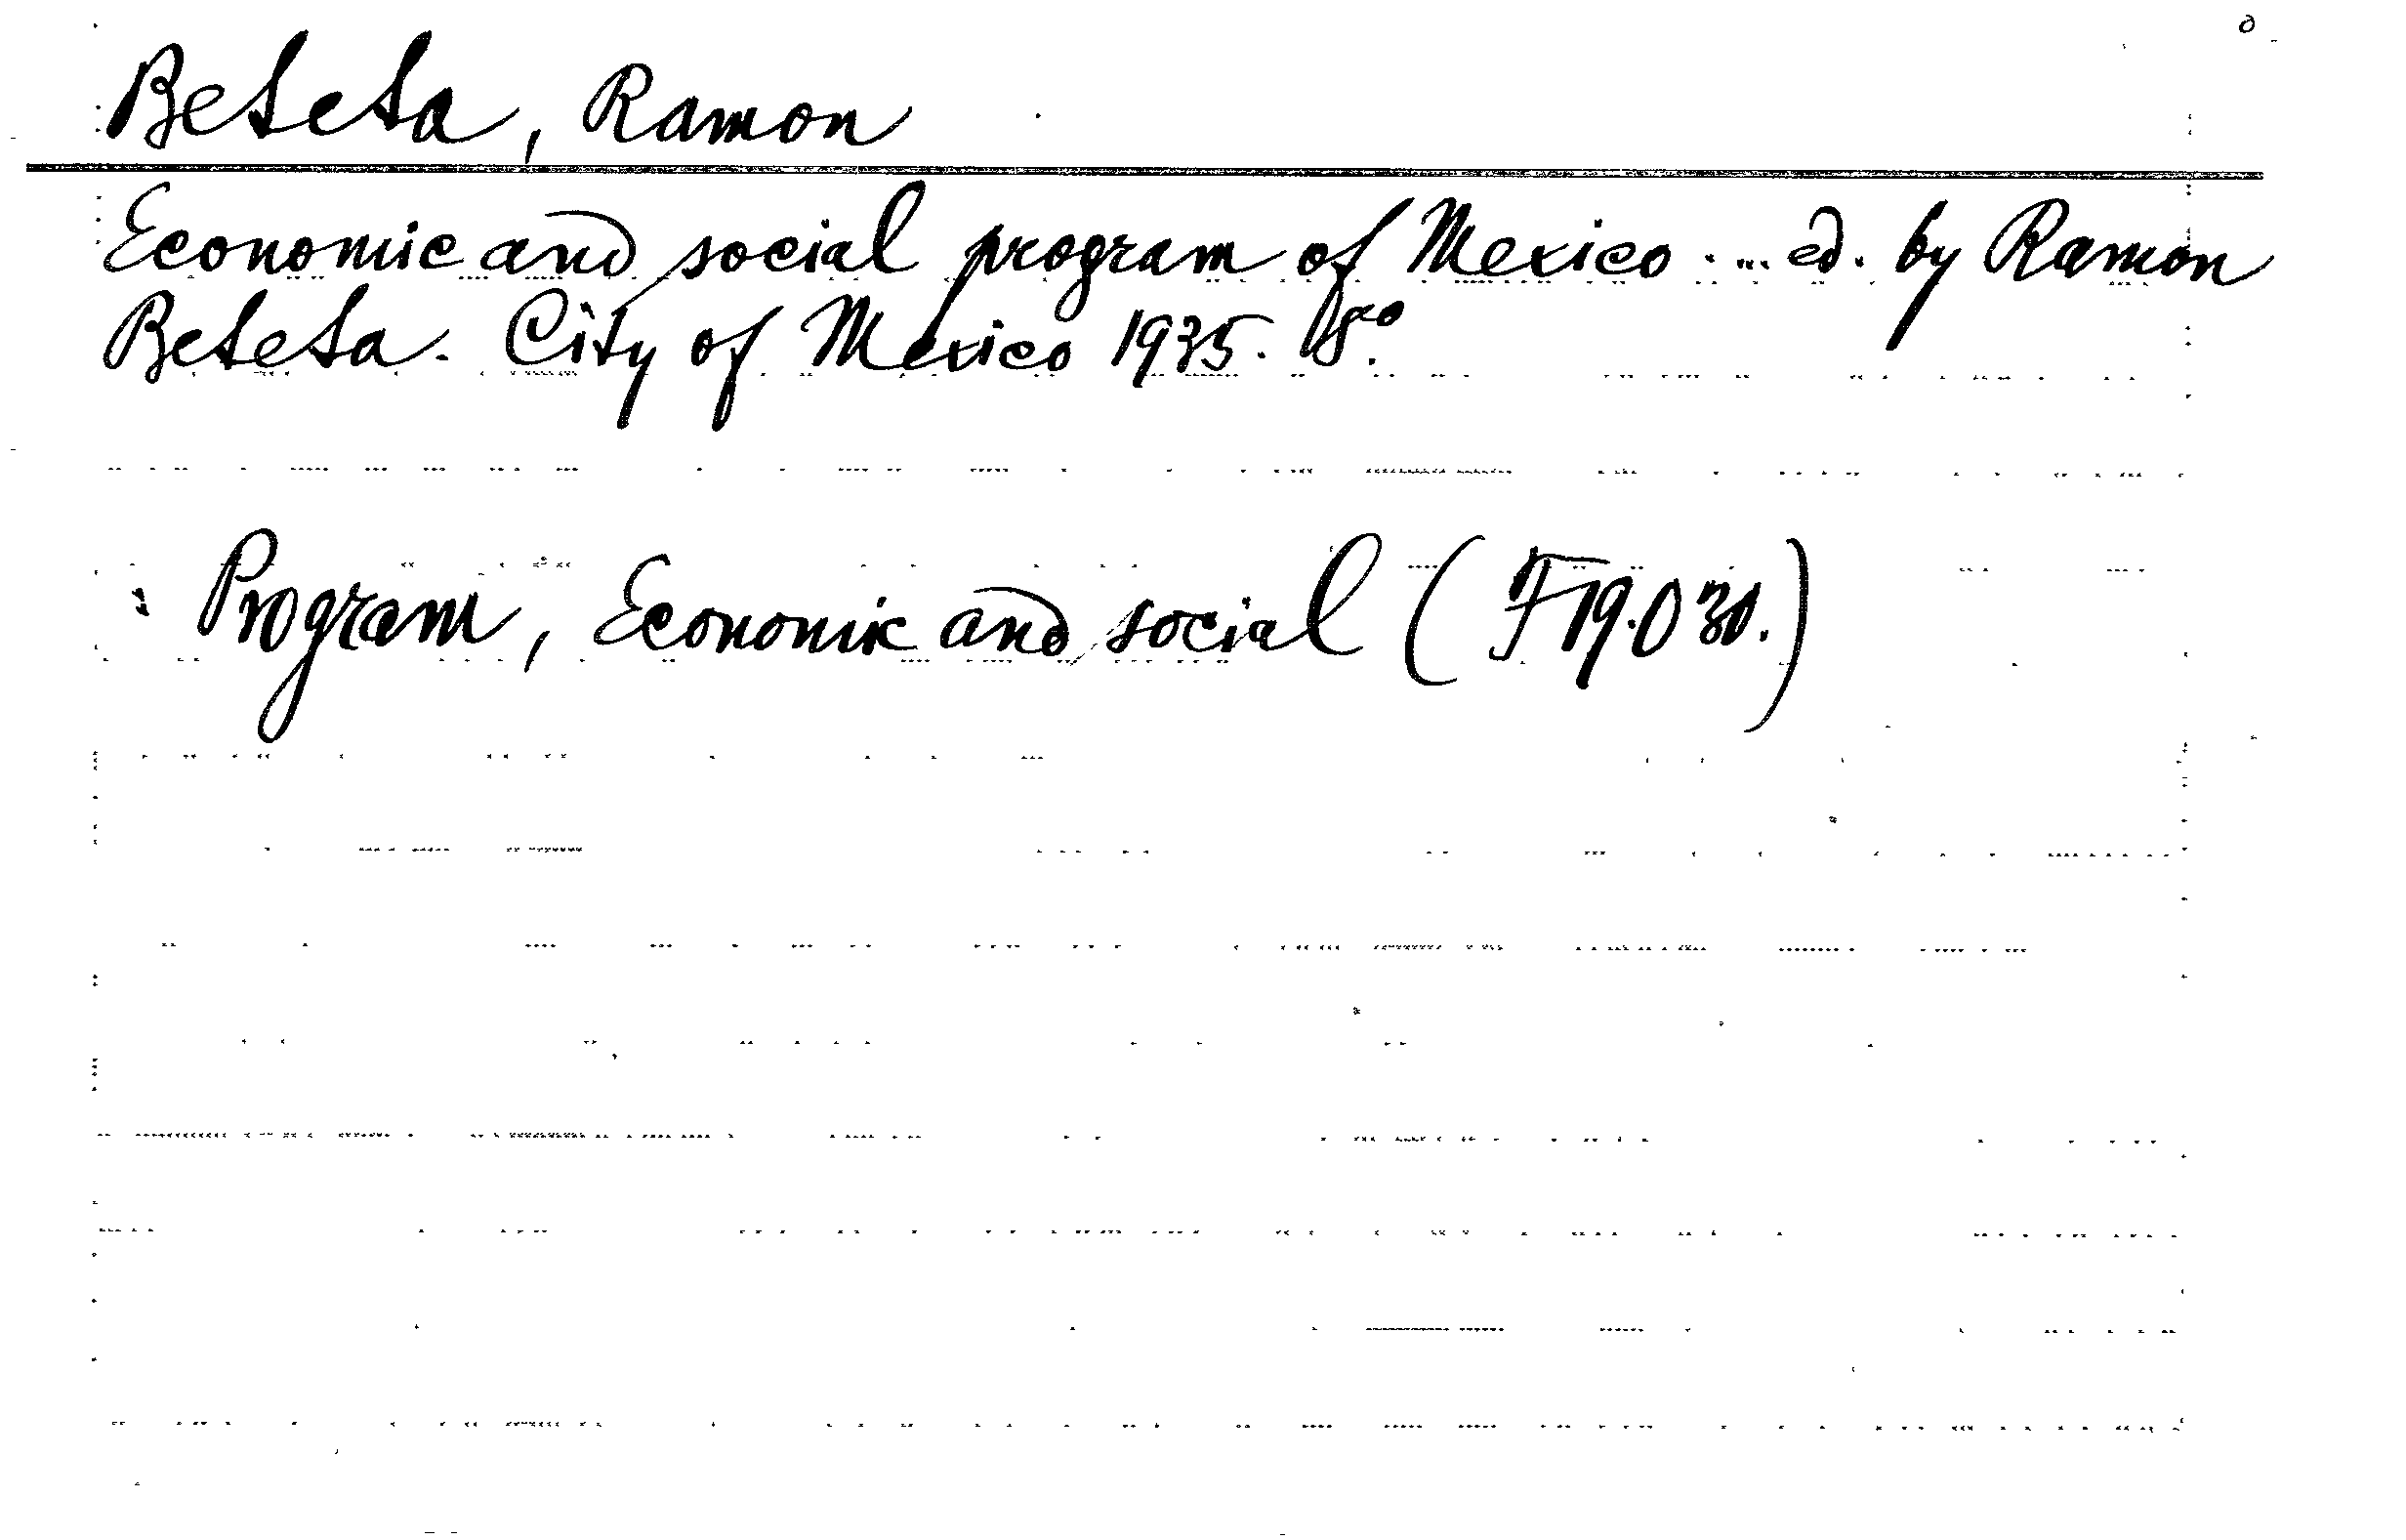 Beteta, Ramon
Economic and social program of Mexico ... ed. by Ramon
Beteta. City of Mexico 1935. 8o.
: Program, Economic and social (F19.030.)